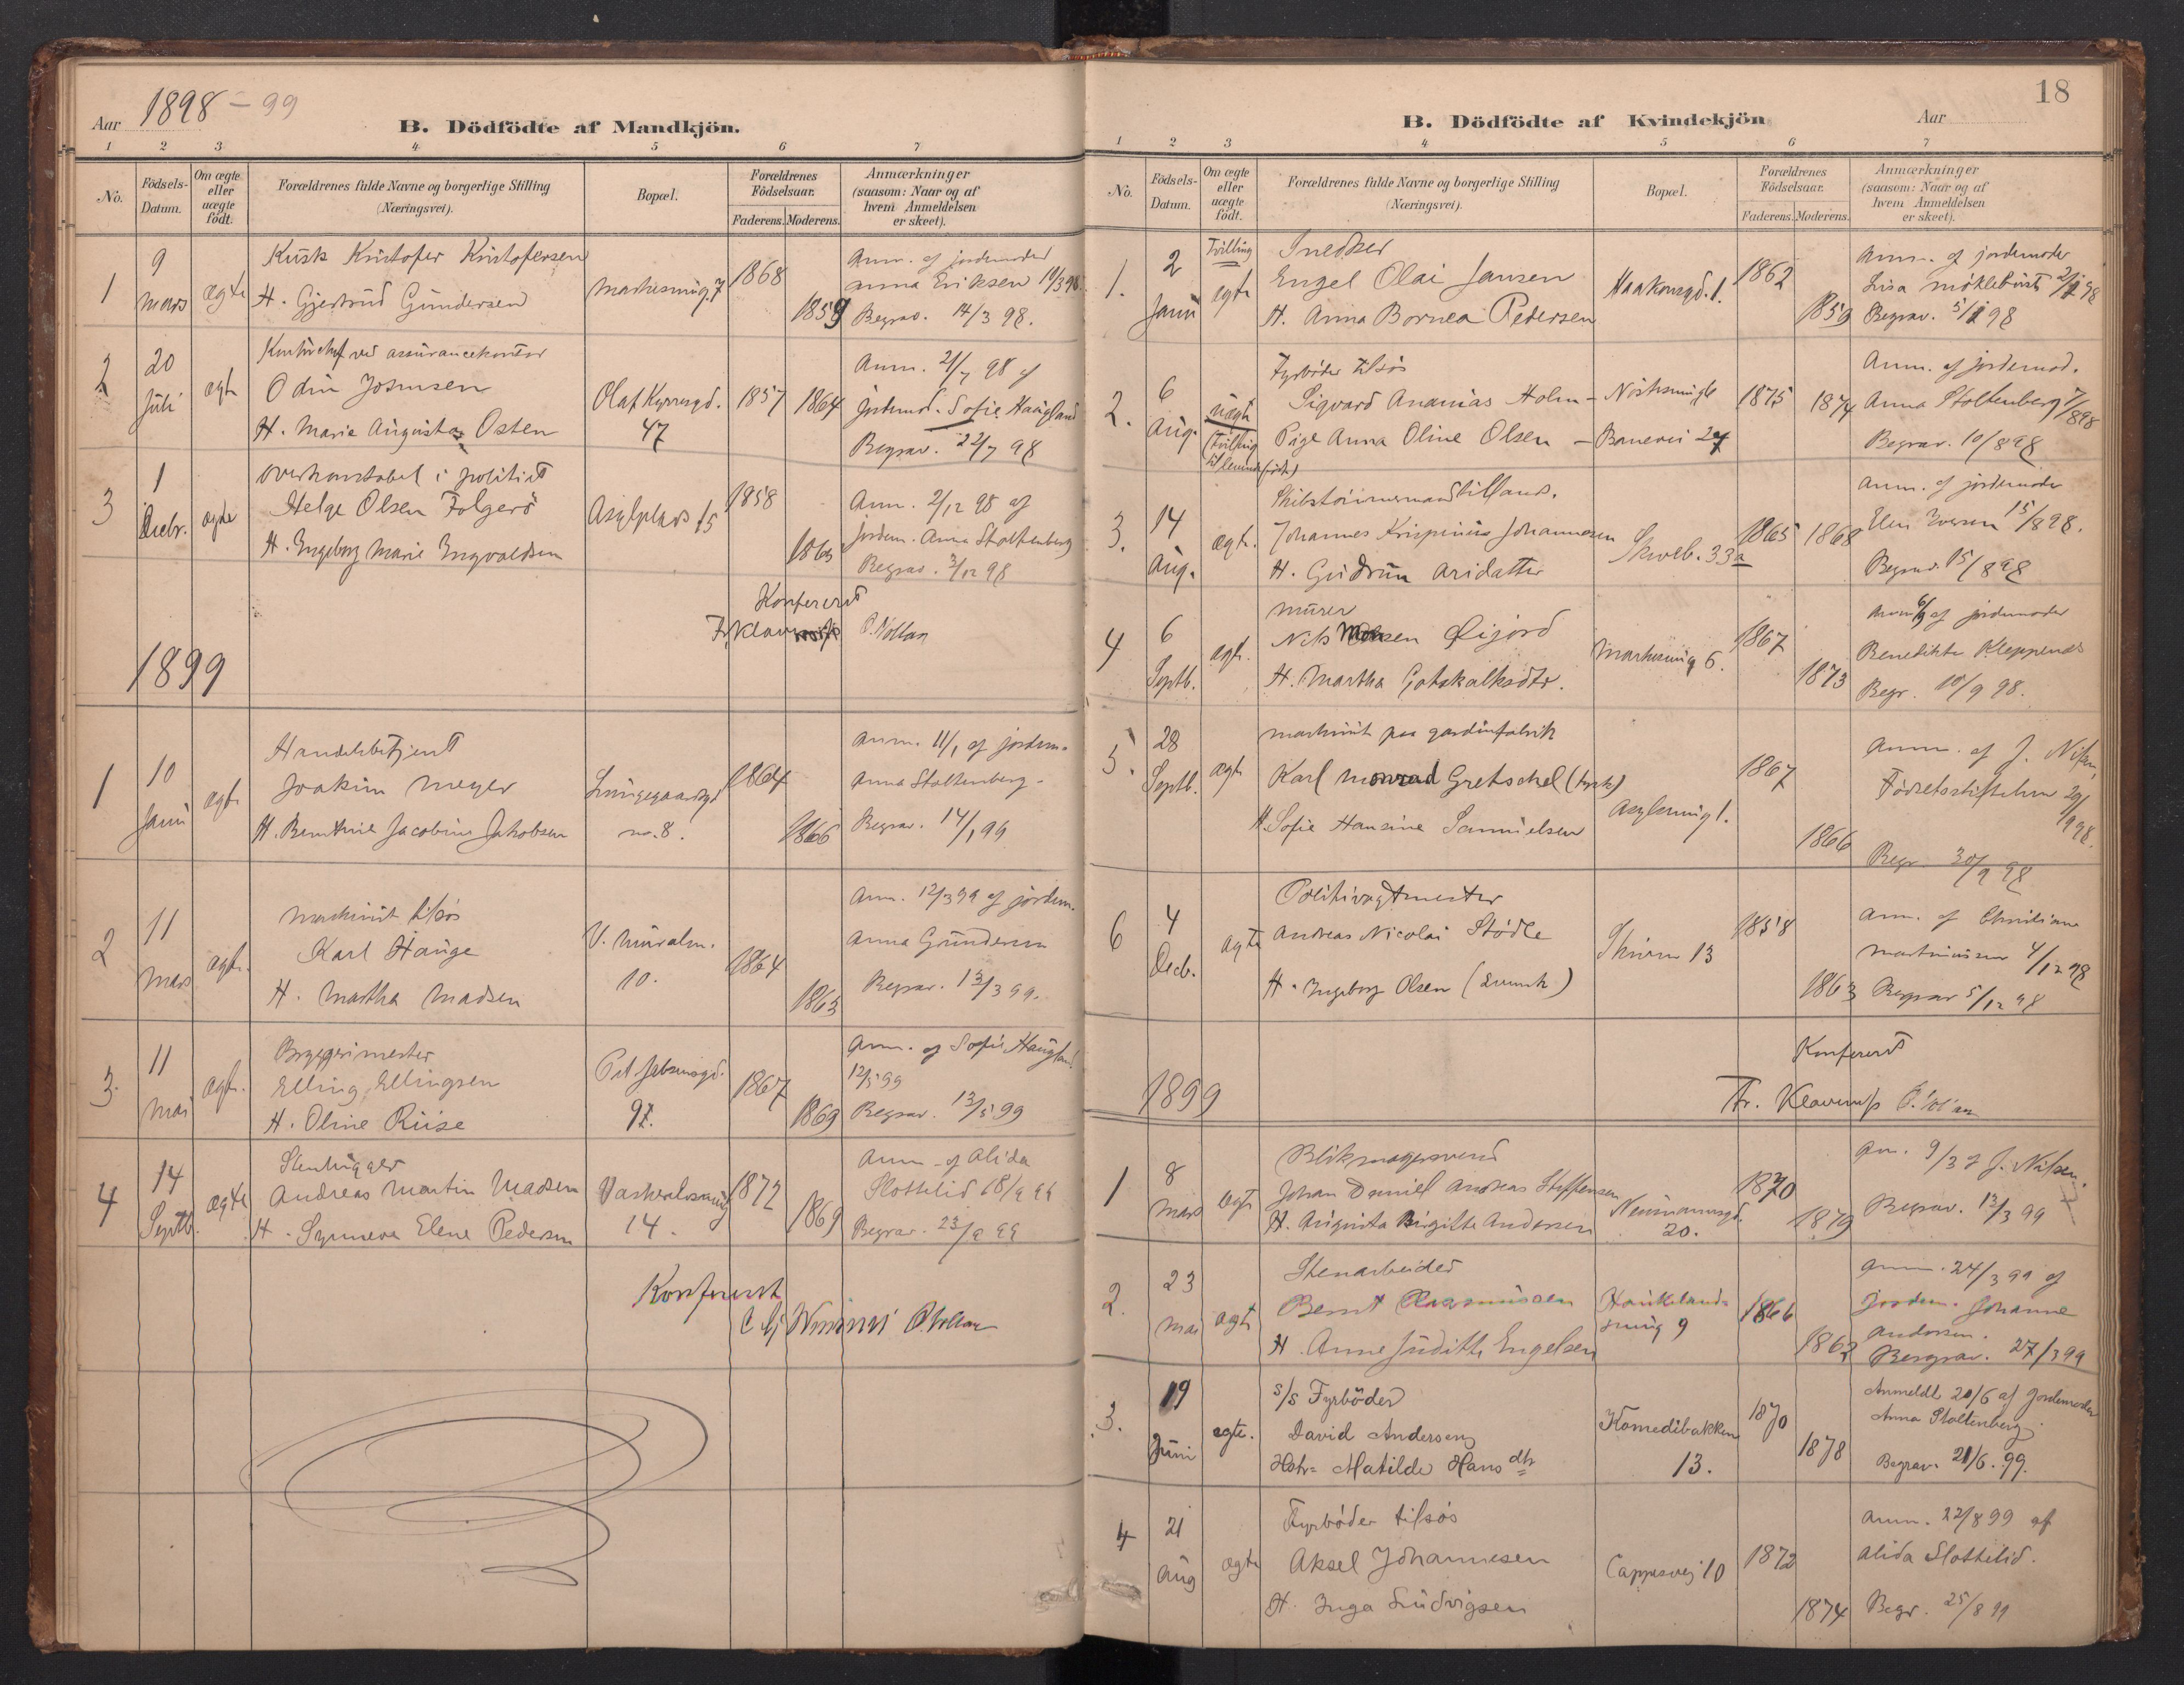 Aar 1898 - 99
B. Dödfödte af Mandkjön.
1 2 3 4 5 6 7
No.
Födsels-Datum.
Om ægte eller uægte födt.
Forældrenes fulde Navne og borgerlige Stilling (Næringsvei).
Bopæl.
Forældrenes Födselsaar.
Faderens. Moderens.
Anmærkninger (saasom: Naar og af hvem Anmeldelsen er skeet).
1
9 mars
ægte
Kusk Kristofer Kristofersen
H. Gjertrud Gundersen
Markesmug. 7
1868
1859
Anm. af jordemoder
Anna Eriksen
Begrav. 14/3 98.
2
20 Juli
ægte
Kontorchef ved assurancekontor
Odin
H. Marie Augusta Osten
Olaf Kyrresgd. 47
1857
1864
Anm. 21/7 98 af
jordemod. Sofie Haugland
Begrav. 22/7 98
3
1 Decbr.
ægte
Overkonstabel i politiet
Helge Olsen Folgerö
H. Engeborg Marie Ingvaldsen
Asylplads 15
1858
Anm. 2/12 98 af
jordem. Anna Stoltenberg
Begrav. 3/12 98
Konfereret
Fr. Klaveness P. Vollan
1899
1
10 Janu
ægte
Handelsbetjent
Joakim Meyer
H. Berntine Jacobine Jakobsen
Lungegaardsgd no. 8.
1864
1866
Anm. 11/1 af jordem.
Anna Stoltenberg.
Begrav. 14/1 99
2
11 Mars
ægte.
Maskinist tilsös
Karl Hauge
H. Martha Madsen
V. Muralm. 10.
1864
1863
Anm. 12/3 99 af jordem.
Anna Gundersen
Begrav. 13/3 99.
3.
11 Mai
ægte.
Bryggerimester
Elling Ellingsen
H. Oline Riise
1867
1869
Anm. af Sofie Haugland
12/5 99
Begrav. 13/5 99
4
14 Septb.
ægte
Stenhugger
Andreas Martin Madsen
H. Synneve Elene Pedersen
14.
1872
1869
Anm. af Alida
Slottelid 18/9 99
Begrav. 23/9 99
Konfereret
P. Vollan
18
B. Dödfödte af Kvindekjön
Aar
1 2 3 4 5 6 7
No.
Födsels-Datum.
Om ægte eller uægte födt.
Forældrenes fulde Navne og borgerlige Stilling (Næringsvei).
Bopæl.
Forældrenes Födselsaar.
Faderens. Moderens.
Anmærkninger (saasom: Naar og af hvem Anmeldelsen er skeet).
1.
2 Janu
Tvilling
ægte
Snedker
Engel Olai Jansen
H. Anna Bornea Pedersen
Haakonsgd. 1.
1862
1859
Anm. af jordemoder
Lisa Möklebust 2/1 98
Begrav. 5/1 98
2.
6 Aug.
uægte
(Tvilling til levende födt)
Fyrböder tilsös
Sigvard Ananias Holm - Nöstesmug
Pige Anna Oline Olsen - Banevei 24
1875
1874
Anm. af jordemod.
Anna Stoltenberg 7/8 98
Begrav. 10/8 98
3.
14 Aug.
ægte.
Skibstömmermand tillands.
Johannes Krispinus Johannesen
H. Gudrun Aridatter
Skiveb. 33a
1865
1868
Anm. af jordemoder
Elen Iversen 15/8 98.
Begrav. 15/8 98
4
6 Septb.
ægte.
Murer
Nils Öijord
H. Martha Gotskalksdtr.
Markesmug 6.
1867
1873
Anm 6/9 af jordemoder
Benedikte Kleppenes
Begr. 10/9 98.
5.
28 Septb.
ægte
Maskinist paa gardinfabrik
Karl Monrad Gretschel (tysk)
H. Sofie Hansine Samuelsen
Asylsmug 1.
1867
1866
Anm. af J. Nilsen,
Födselsstiftelsen 29/9 98.
Begr. 30/9 98
6
4 Decb.
ægte
Politivagtmester
Andreas Nicolai Stödle
H. Ingeborg Olsen (Svensk)
Skiven 13
1858
1863
Anm. af Christiane
Martinussen 4/12 98
Begrav 5/12 98
Konfereret
1899
Fr. Klaveness P. Vollan
1
8 Mars
ægte
Blikmagersvend
Johan Daniel Andreas Steffensen
H. Augusta Birgitte Andersen
Neumannsgd. 20.
1870
1879
Anm. 9/3 af J. Nilsen.
Begrav. 13/3 99
2.
23 Mai
ægte
Stenarbeider
Bernt Rasmussen
H. Anne Judith Engelsen
Haukelandssmug 9
1866
1862
Anm. 24/3 99 af
jordem. Johanne
Andersen.
Begrav. 27/3 99
3.
19 Juni
ægte.
S/S Fyrböder
David Andersen
Hstr. Matilde Hansdtr
Komedibakken 13.
1870
1878
Anmeldt 20/6 af Jordemoder
Anna Stoltenberg.
Begrav. 21/6. 99.
4
21 Aug
ægte
Fyrböder tilsös
Aksel Johannesen
H. Inga Ludvigsen
Cappesvej 10
1872
1874
Anm. 22/8 99 af
Alida Slottelid.
Begr. 25/8 99